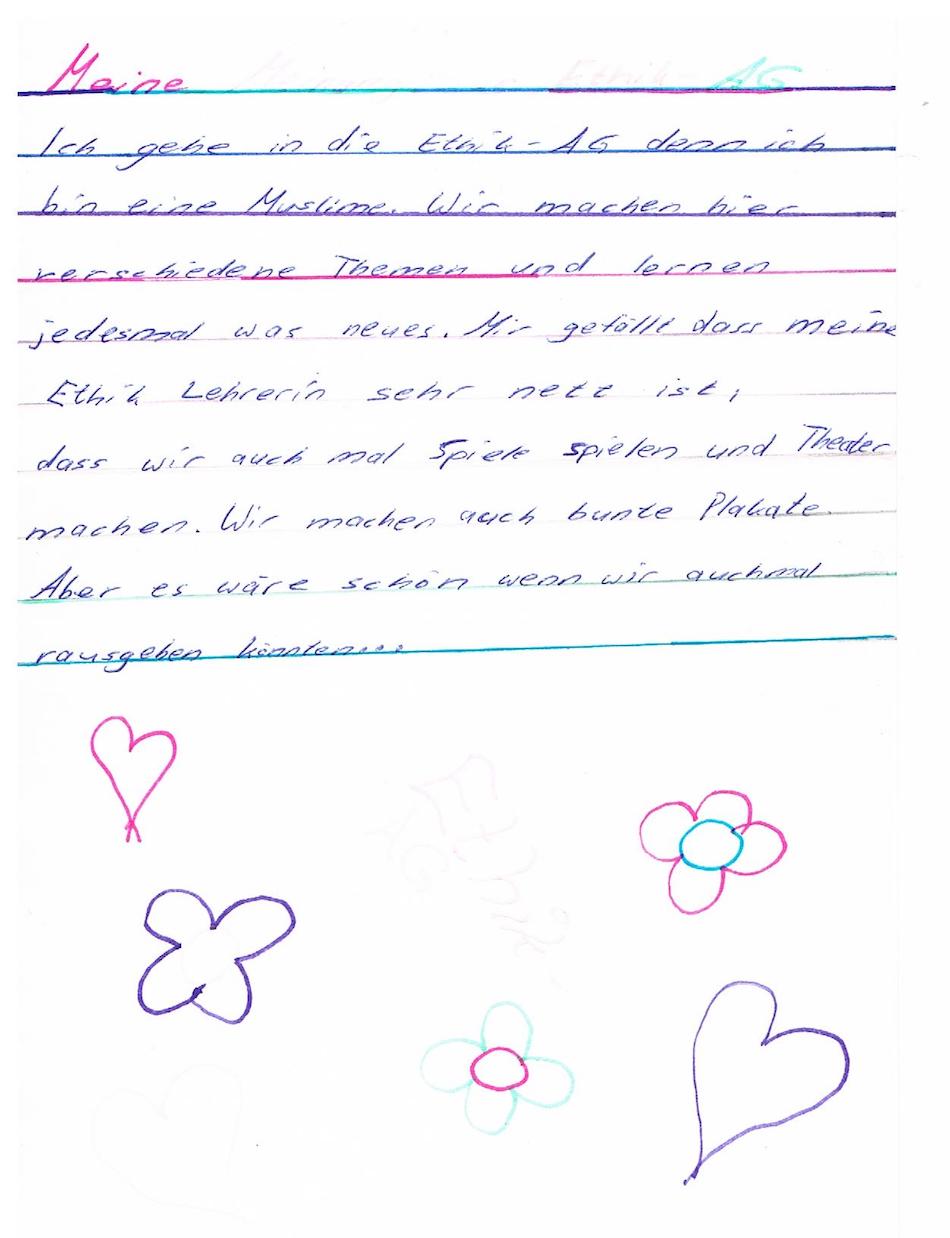 Meine Meinung Ethik-AG
Ich gehe in die Ethik-AG denn ich
bin eine Muslime. Wir machen hier
verschiedene Themen und lernen
jedesmal was neues. Mir gefällt dass meine
Ethik Lehrerin sehr nett ist,
dass wir auch mal Spiele spielen und Theater
machen. Wir machen auch bunte Plakate.
Aber es wäre schön wenn wir auchmal
rausgehen könnten...
Ethik